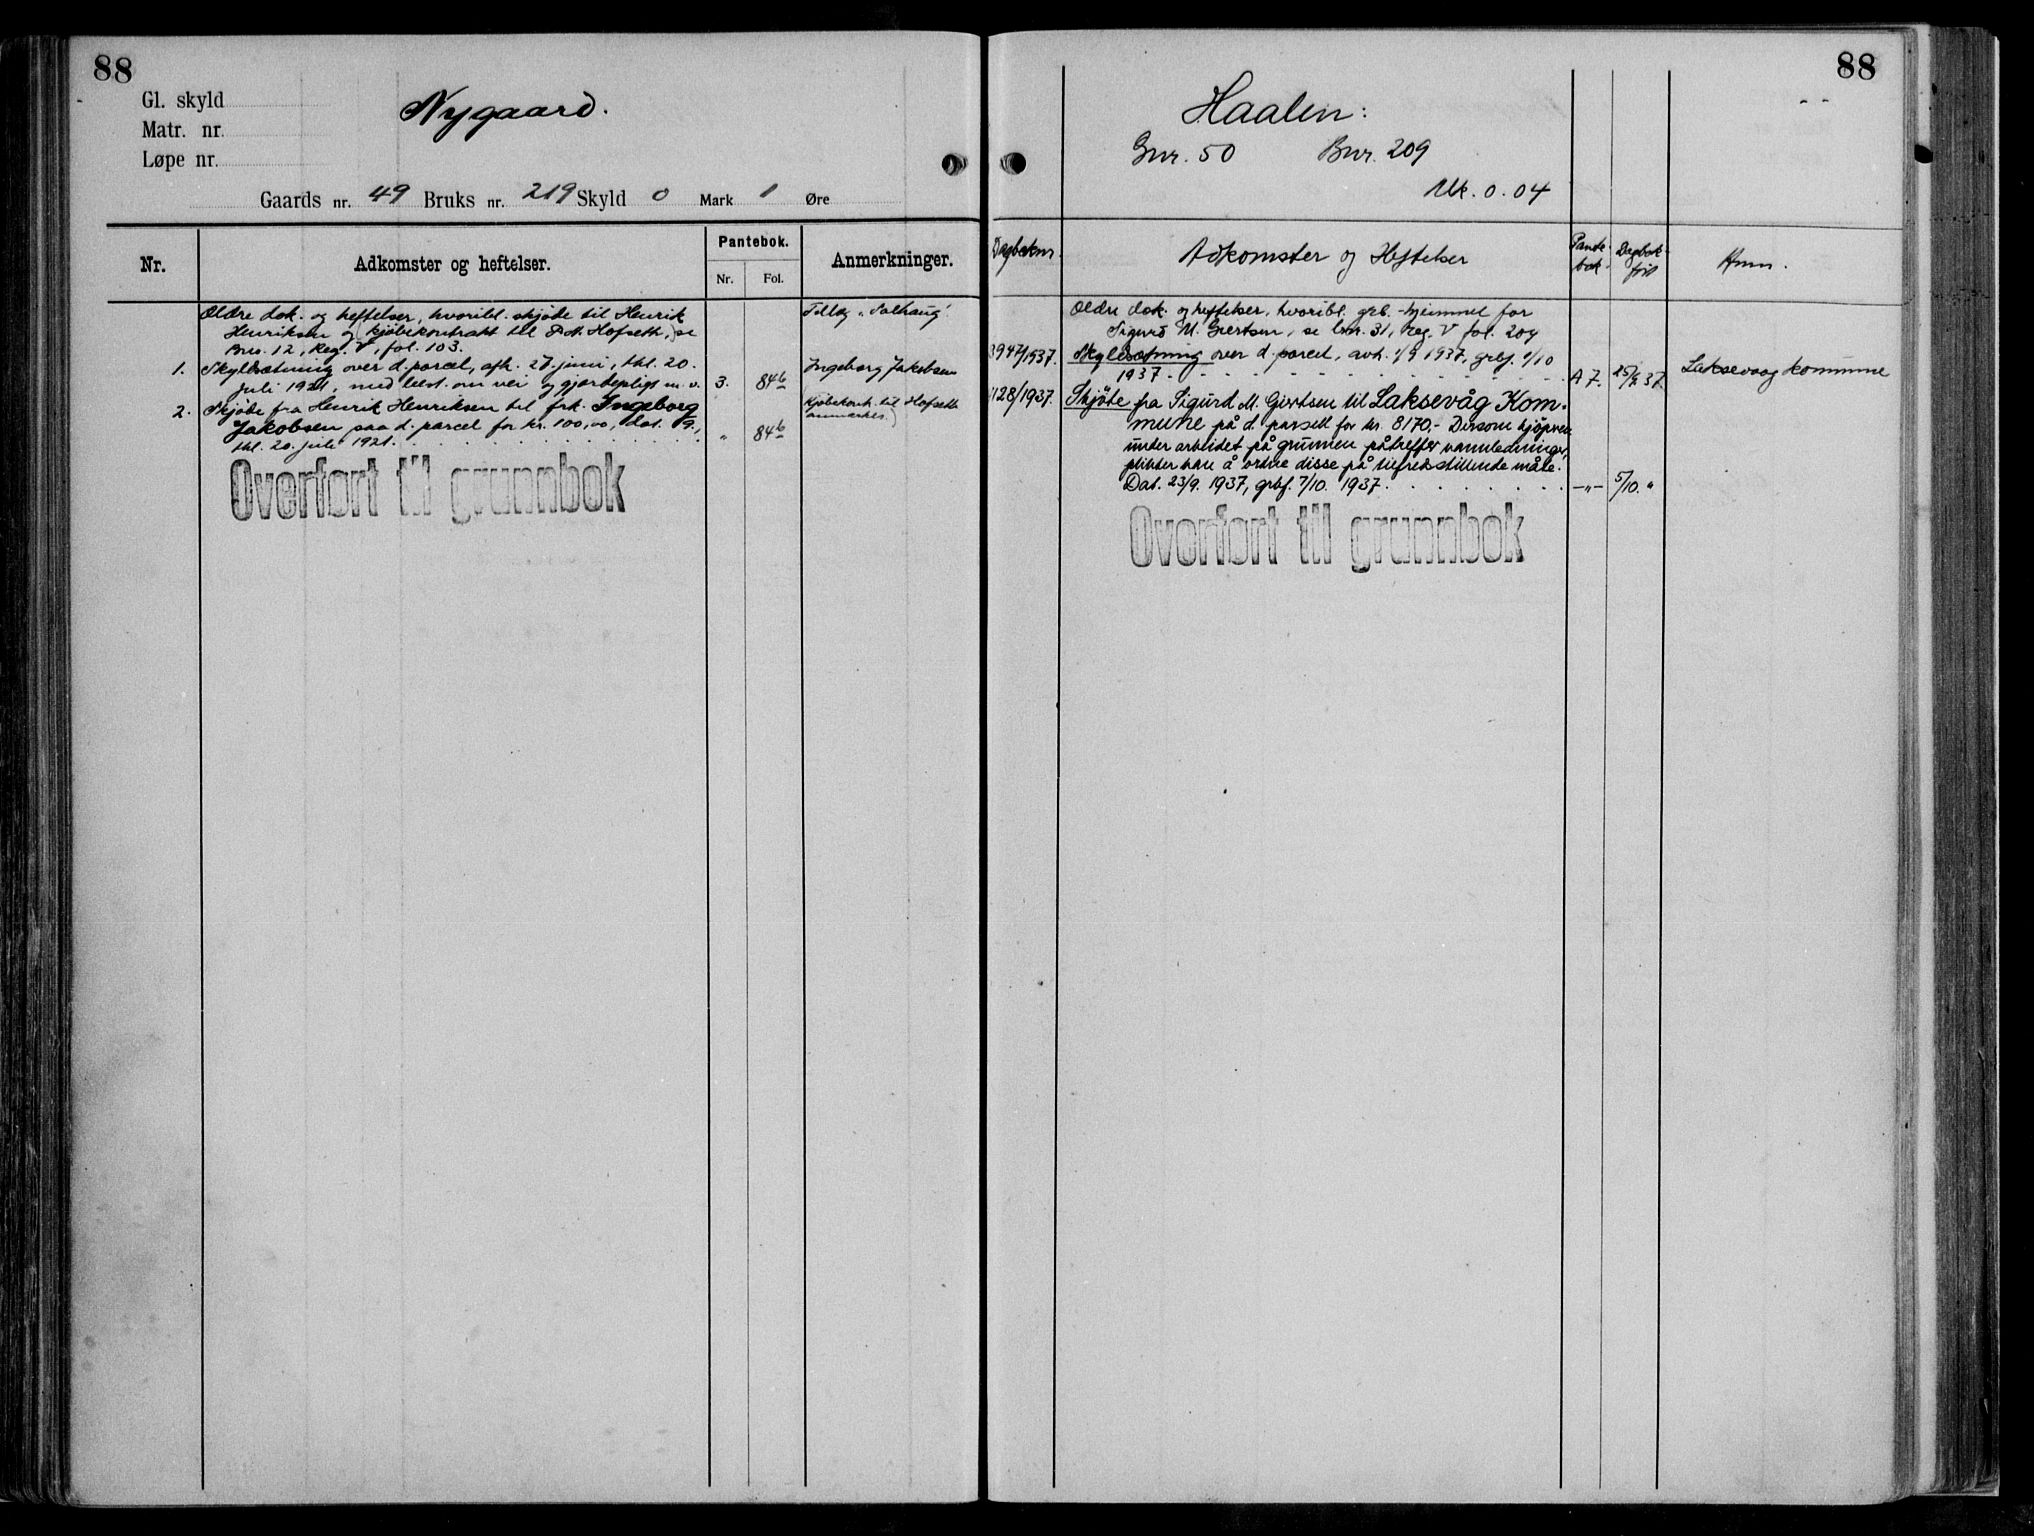 88
Gl. skyld
Matr. nr.
Løpe nr.
Nygaard.
Gaards nr. 49 Bruks nr. 219 Skyld 0 Mark 1 Øre
Nr.
Adkomster og heftelser.
Pantebok.
Nr.
Fol.
Anmerkninger.
Ældre dok. og heftelser, hvoribl. skjøde til Henrik
Henriksen og (kjøbekontrakt til P. M. Hofseth,) se
Bno. 12, Reg. V, fol. 103.
Tillæg "Solhaug"
1. Skyldsætning over d. parcel, afh. 27. juni, thl. 20.
juli 1921, med best. om vei og gjærdepligt m. v. 3. 846
Ingeborg Jakobsen
2. Skjøde fra Henrik Henriksen til frk. Ingeborg
Jakobsen paa d. parcel for kr. 100,00, dat. 9.,
thl. 20. juli 1921. " 846
Kjøbekont. til Hofseth
anmerkes)
Overført til grunnbok
88
Haalen:
Gnr. 50 Bnr. 209
Mk. 0.04
Dagboknr.
Adkomster og Heftelser
Pante-
bok.
Dagbok-
føil
Anm.
Ældre dok. og heftelser, hvoribl. grb.-hjemmel for
Sigurd M. Giertsen, se bnr. 31, Reg. V fol. 204
3947/1937. Skyldsætning over d. parcel, avh. 1/9 1937, grbf. 1/10
1937. A 7. 25/9 37
Laksevaag kommune
4128/1937. Skjöte fra Sigurd M. Giertsen til Laksevåg Kom-
mune på d. parsell for kr. 8170,- Dersom kjöperen
under arbeidet på grunnen påtreffer vannledninger,
plikter han å ordne disse på tilfredsstillende måte.
Dat. 23/9. 1937, grbf. 7/10. 1937. -"- 5/10. "
Overført til grunnbok